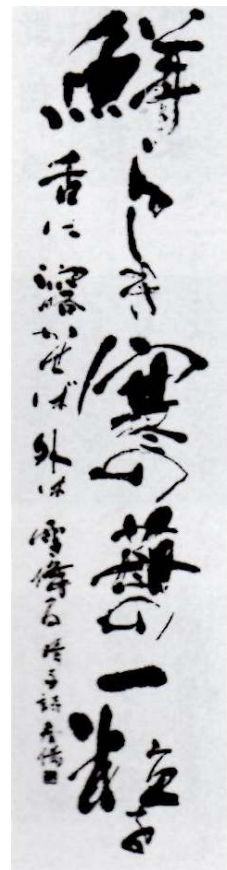 鮮らしき寒の苺の一粒を
舌に溶かせば外は雪降る